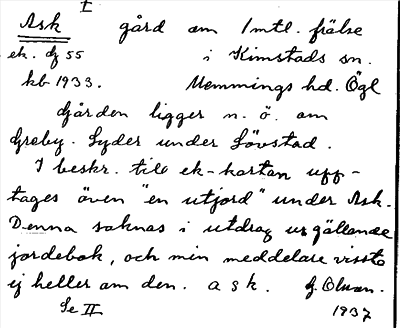 I
Ask gård om 1 mtl. frälse
ek. bj 55 i Kimstads sn.
kb 1933. Memmings hd. Ögl
Gården ligger n. ö. om
Greby. Lyder under Lövstad.
I beskr. till ek-kartan upp-
tages även "en utjord" under Ask.
Denna saknas i utdrag ur gällande
jordebok, och min meddelare visste
ej heller om den. a s k. G. Olson.
Se II 1937